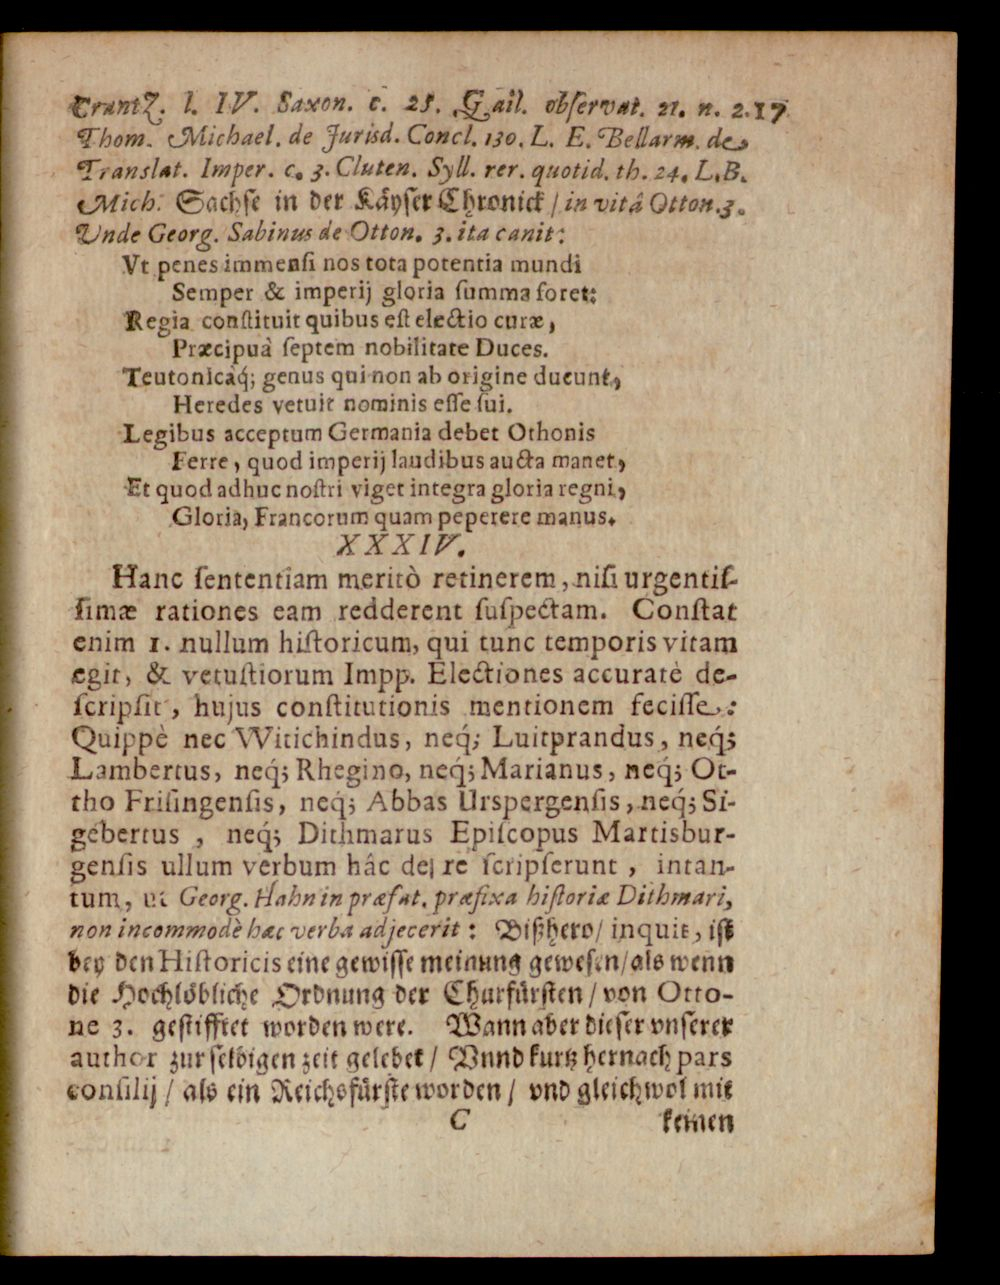 CrantZ. l. IV. Saxon. c. 25. Gail. obſervat. 21. n. 2.17
Thom. Michael. de Jurisd. Concl. 130. L. E. Bellarm. de
Translat. Imper. c. 3. Cluten. Syll. rer. quotid. th. 24. L.B.
Mich. Sachſe in der Kåyſer Chronick / in vitâ Otton.3.
Unde Georg. Sabinus de Otton. 3. ita canit:
Vt penes immenſi nos tota potentia mundi
Semper & imperij gloria ſumma foret:
Regia conſtituit quibus eſt electio curæ,
Præcipuâ ſeptem nobilitate Duces.
Teutonicáq́; genus qui non ab origine ducunt,
Heredes vetuit nominis eſſe ſui.
Legibus acceptum Germania debet Othonis
Ferre, quod imperij laudibus aucta manet,
Et quod adhuc noſtri viget integra gloria regni,
Gloria, Francorum quam peperere manus.
XXXIV.
Hanc ſententiam meritò retinerem, niſi urgentiſ-
ſimæ rationes eam redderent ſuſpectam. Conſtat
enim 1. nullum hiſtoricum, qui tunc temporis vitam
egit, & vetuſtiorum Impp. Electiones accuratè de-
ſcripſit, hujus conſtitutionis mentionem feciſſe:
Quippè nec Witichindus, neq́; Luitprandus, neq́;
Lambertus, neq́; Rhegino, neq́; Marianus, neq́; Ot-
tho Friſingenſis, neq́; Abbas Urspergenſis, neq́; Si-
gebertus , neq́; Dithmarus Epiſcopus Martisbur-
genſis ullum verbum hâc de re ſcripſerunt , intan-
tum, ut Georg. Hahn in præfat. præfixa hiſtoriæ Dithmari,
non incommodè hæc verba adjecerit : Bißhero/ inquit, iſt
bey den Hiſtoricis eine gewiſſe meinung geweſen/als wenn
die Hochlöbliche Ordnung der Churfürſten / von Otto-
ne 3. geſtifftet worden were. Wann aber dieſer vnſerer
author zur ſelbigen zeit gelebet / Vnnd kurtz hernach pars
conſilij / als ein Reichsfürſte worden / vnd gleichwol mit
C keinen